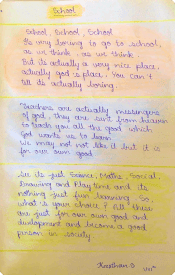 School
School, School, School
It's very boring to go to school,
as we think, as we think.
But its actually a very nice place,
actually god is place. You can't
tell its actually boring.
Teachers are actually messengers
of god, they are sent from heaven
to teach you all the good which
God wants us to learn
We may not not like it but it is
for our own good.
its just Science, Maths, Social,
Drawing and Playtime and its
nothing just fun learning. So,
what is your choice? All these
are just for our own good and
development and become a good
person in society.